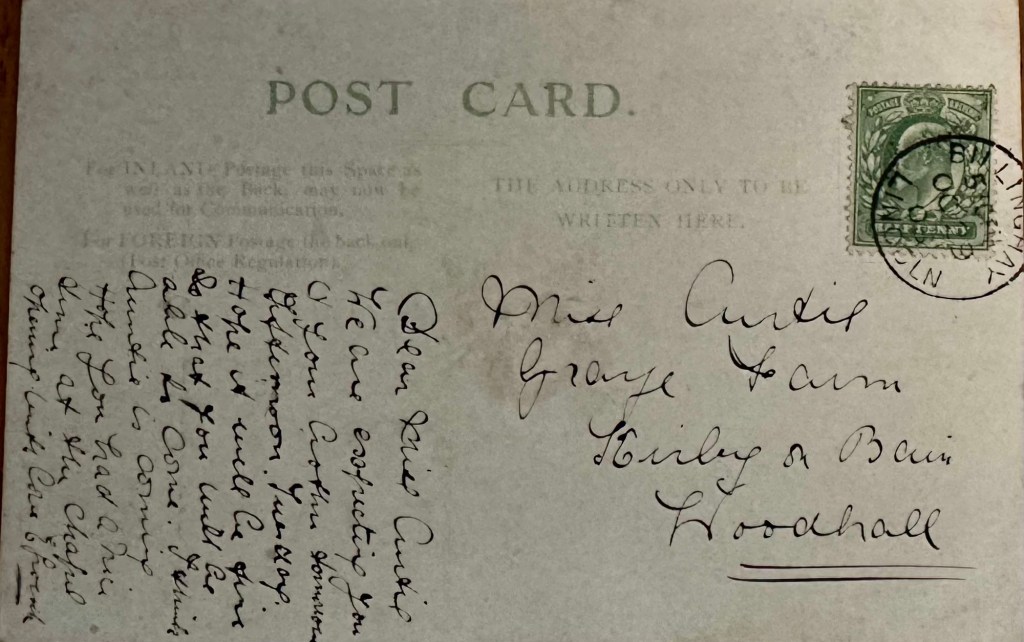 POST CARD.
For INLAND Postage this Space as
well as the Back, may now be
used for Communication.
For FOREIGN Postage the back only
(Post Office Regulation).
THE ADDRESS ONLY TO BE
WRITTEN HERE.
POSTAGE
PENNY
BILLINGHAY
LINCOLN
OC
Miss Curtis
Grange Farm
Kirby on Bain
Woodhall
Dear Miss Curtis
We are expecting you
& your tomorrow
afternoon. Tuesday.
Hope it will be fine
so that you will be
able to come. I think
Auntie is coming
Hope you had a nice
time at the Chapel
opening with love